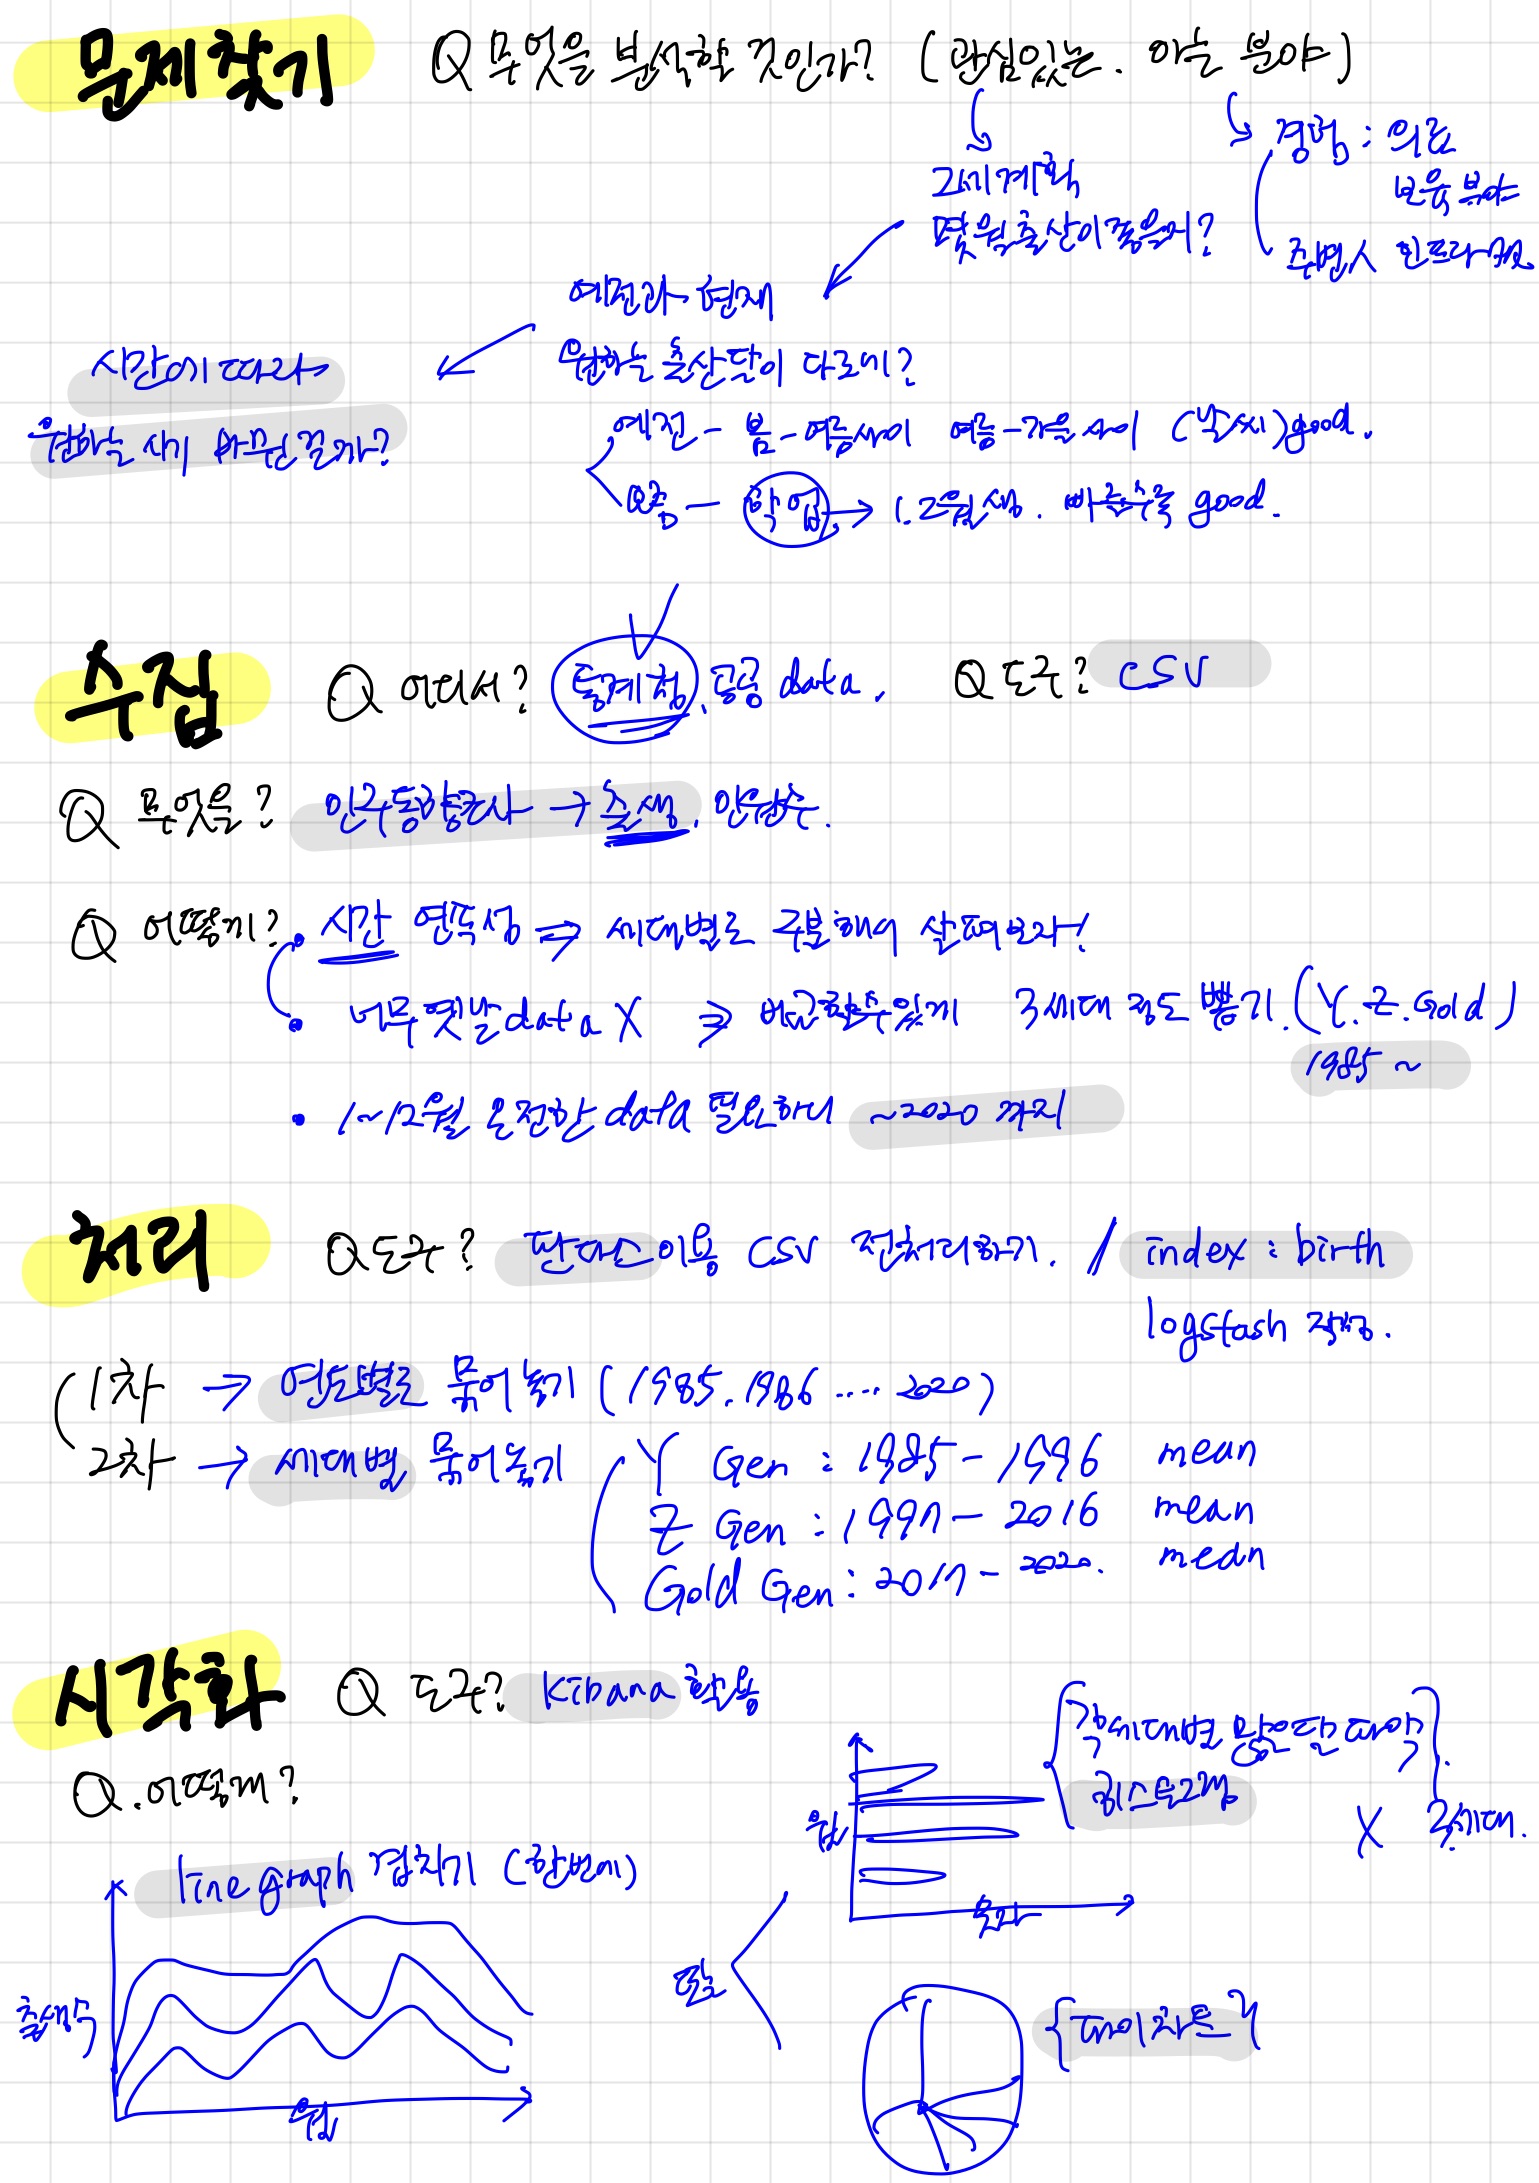 문제찾기
Q 무엇을 분석할 것인가? (관심있는. 아는 분야)
2세계획
몇월출산이좋을지?
경험 : 의료
보육 분야
주변人 인프라
예전과 현재
원하는 출산달이 다르네?
시간에 따라
원하는 시기 바뀐걸까?
예전 - 봄-여름사이 여름-가을 사이 (날씨)good.
요즘 - 학업 → 1.2월생. 빠를수록 good.
수집
Q 어디서? 통계청, 공공 data.
Q 도구? CSV
Q 무엇을? 인구동향조사 → 출생.
Q 어떻게?
• 시간 연속성 ⇒ 세대별로 구분해서 살펴보자!
• 너무 옛날 data X ⇒ 비교할수있게 3세대 정도 뽑기. (Y. Z. Gold)
1985 ~
• 1~12월 온전한 data 필요하니 ~2020 까지
처리
Q 도구? 판다스 이용 CSV 전처리하기. / index : birth
logstash 작성.
1차 → 연도별로 묶어놓기 (1985. 1986 .... 2020)
2차 → 세대별 묶어놓기
Y Gen : 1985 - 1996 mean
Z Gen : 1997 - 2016 mean
Gold Gen : 2017 - 2020. mean
시각화
Q 도구? Kibana 활용
Q. 어떻게?
line graph 겹치기 (한번에)
출생수
월
각세대별 많은달 파악
히스토그램
X 3세대.
월
숫자
{파이차트}